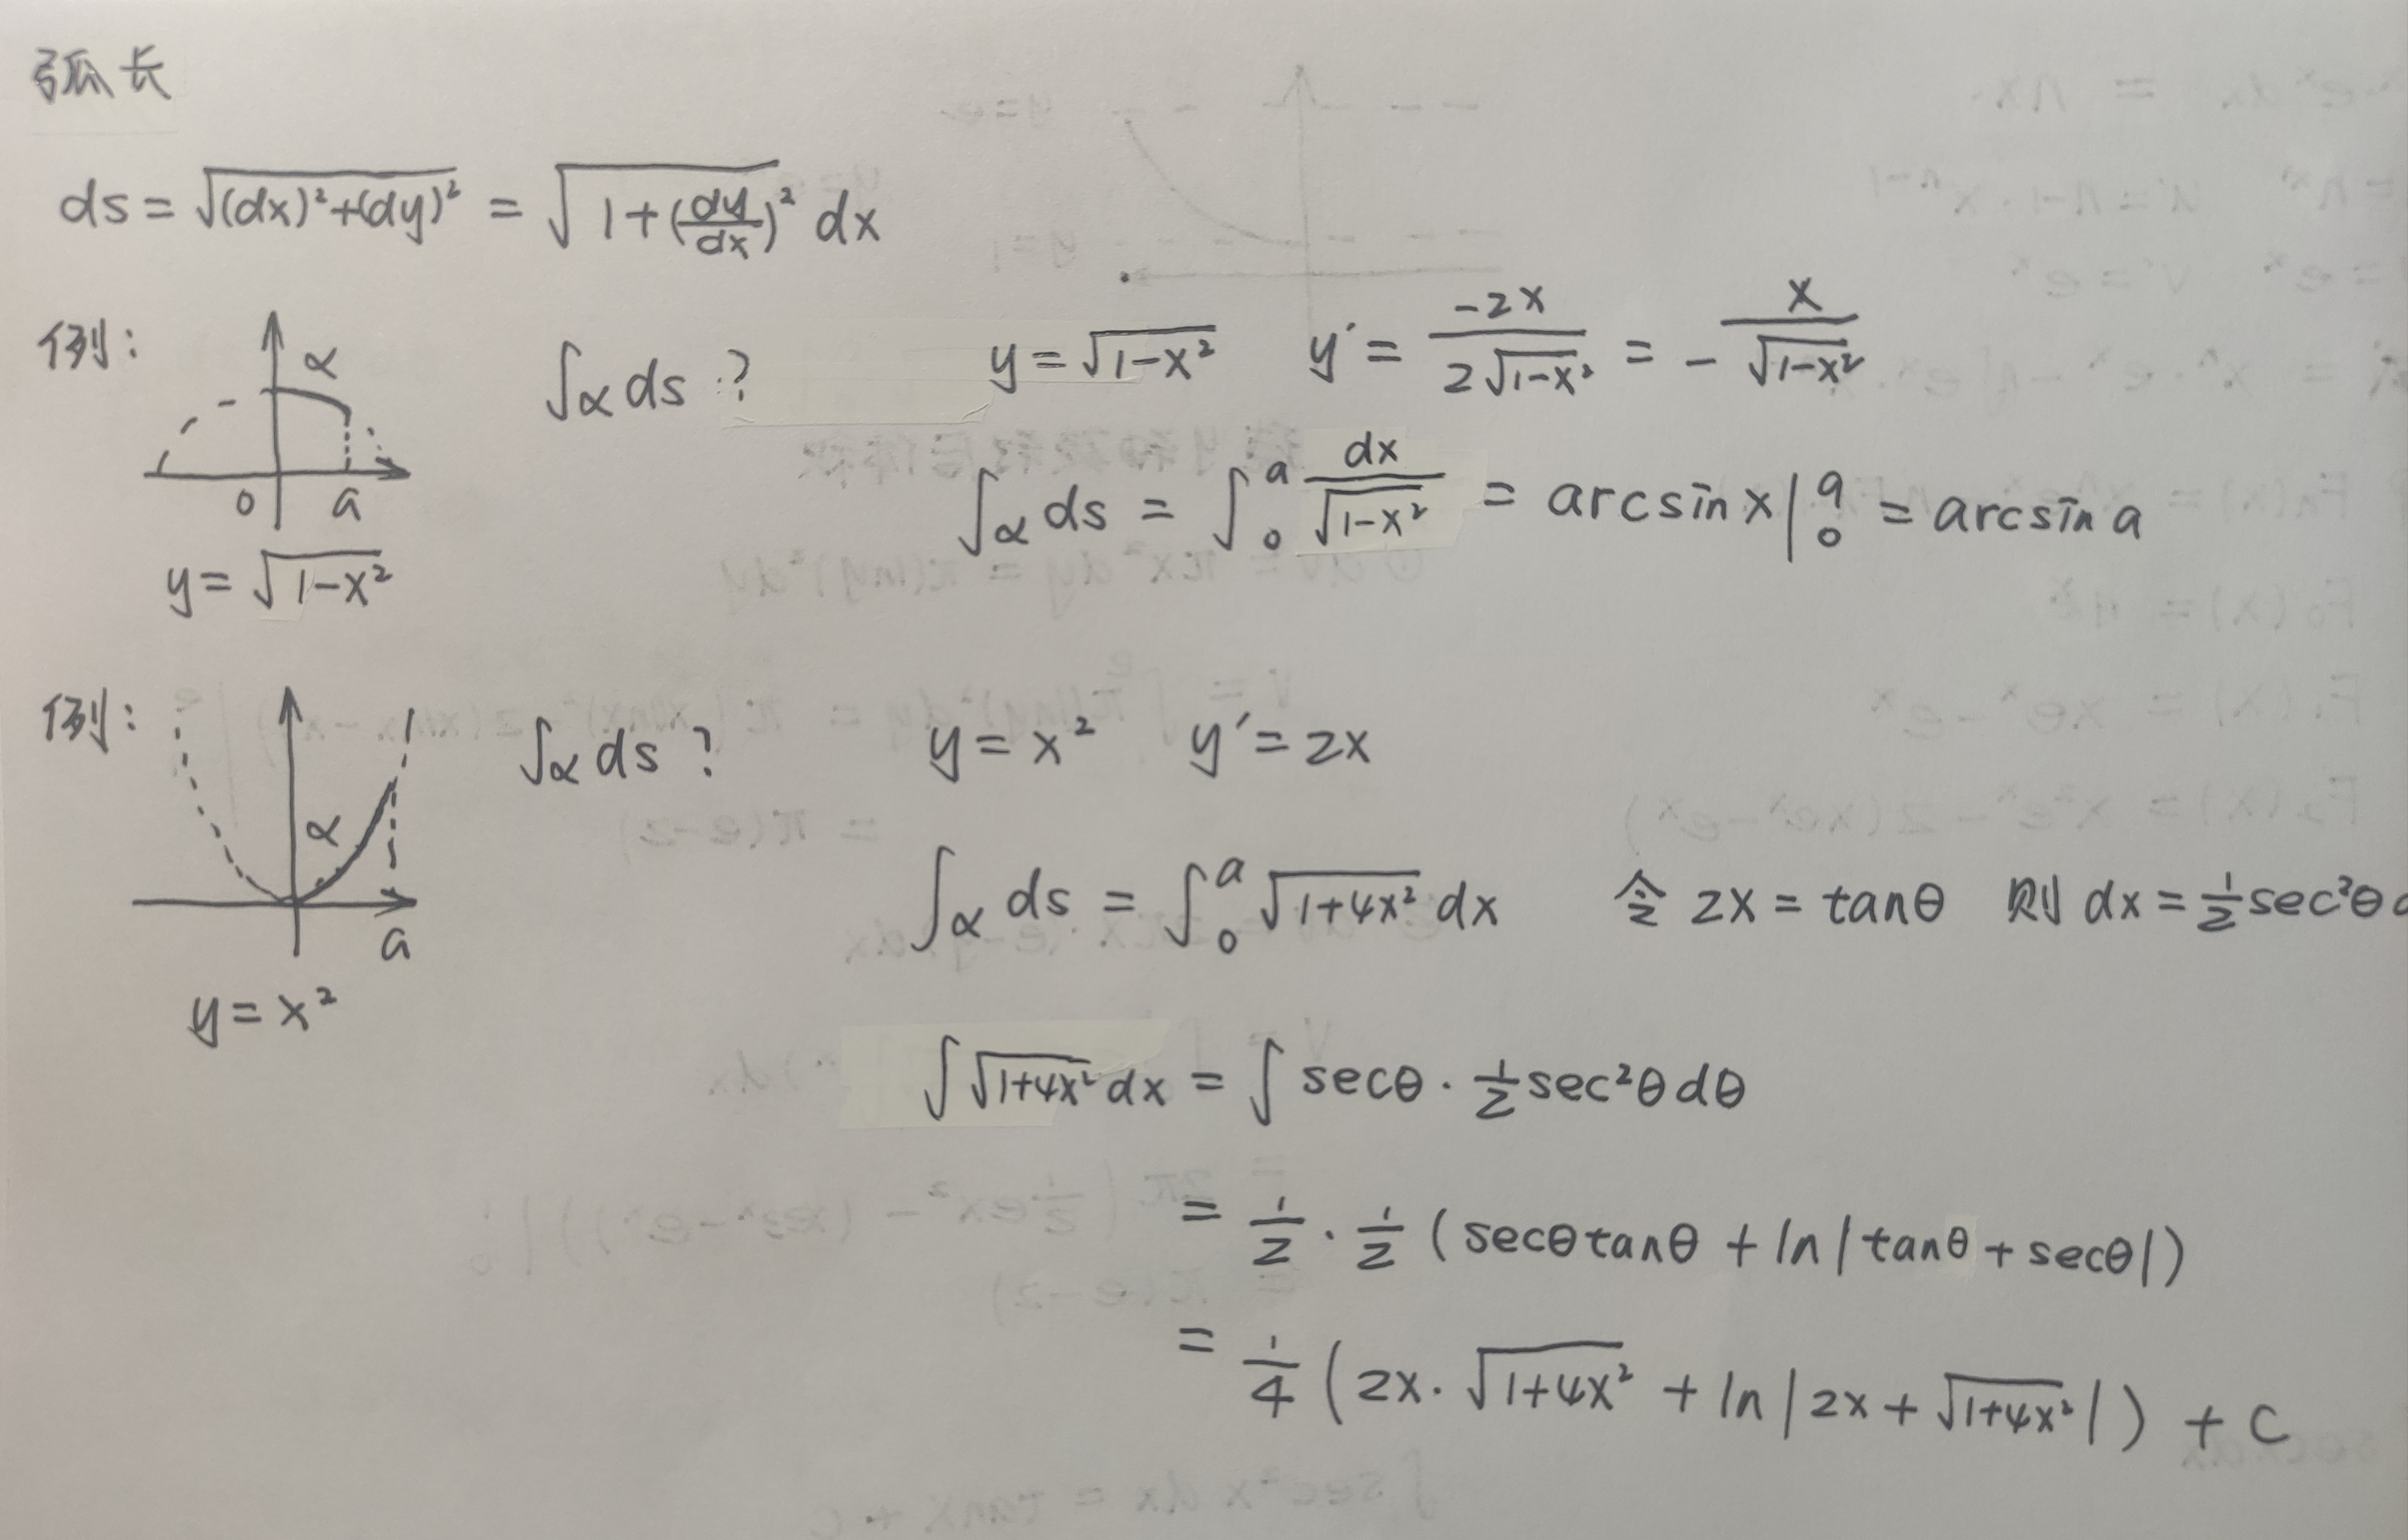 弧长
ds = √((dx)²+(dy)²) = √(1+(dy/dx)²) dx
例: α ∫α ds ? y = √(1-x²) y′ = -2x / 2√(1-x²) = - x/√(1-x²)
0 a
∫α ds = ∫₀ᵃ dx/√(1-x²) = arcsin x |₀ᵃ = arcsin a
y = √(1-x²)
例: ∫α ds ? y = x² y′ = 2x
α
a
∫α ds = ∫₀ᵃ √(1+4x²) dx 令 2x = tanθ 则 dx = ½ sec²θ d
y = x²
∫ √(1+4x²) dx = ∫ secθ · ½ sec²θ dθ
= ½ · ½ ( secθ tanθ + ln | tanθ + secθ | )
= ¼ ( 2x · √(1+4x²) + ln | 2x + √(1+4x²) | ) + C